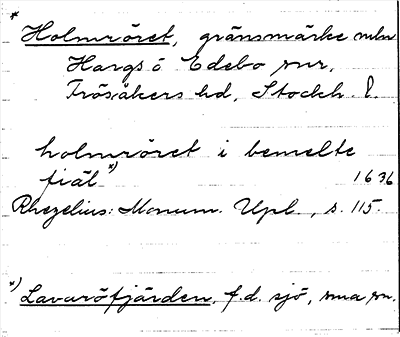 *
Holmröret, gränsmärke mln
Hargs o Edebo snr,
Frösåkers hd, Stockh. l.
holmröret i bemelte
fiäl *) 1636
Rhezelius: Monum. Upl., s. 115.
*) Lavaröfjärden, f.d. sjö, sma sn.